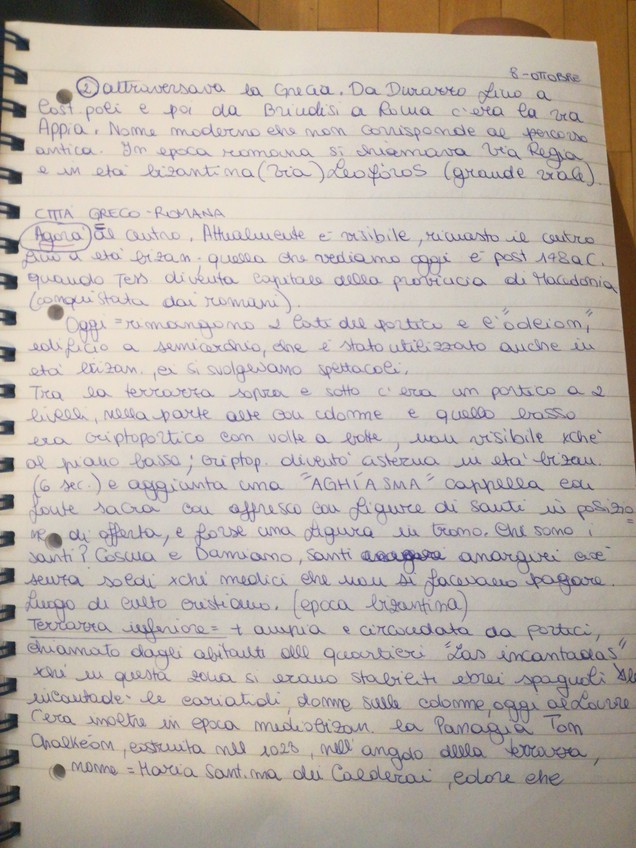 8-OTTOBRE
② attraversava la Grecia. Da Durazzo fino a
Cost.poli e poi da Brindisi a Roma c'era la via
Appia. Nome moderno che non corrisponde al percorso
antico. In epoca romana si chiamava Via Regia
e in età bizantina (via) Leofóros (grande viale).
CITTÀ GRECO-ROMANA
Agorà al centro. Attualmente è visibile, rimasto il centro
fino a età bizan. quella che vediamo oggi è post 148 a.C.
quando Tess. diventa capitale della provincia di Macedonia
(conquistata dai romani).
Oggi = rimangono 2 lati del portico e l'"odeion",
edificio a semicerchio, che è stato utilizzato anche in
età bizan., ci si svolgevano spettacoli.
Tra la terrazza sopra e sotto c'era un portico a 2
livelli, nella parte alta con colonne e quello basso
era criptoportico con volte a botte, non visibile xchè
al piano basso; criptop. diventò cisterna in età bizan.
(6 sec.) e aggiunta una "AGHÌASMA" cappella con
fonte sacra con affresco con figure di santi in posizio
ne di offerta, e forse una figura in trono. Chi sono i
santi? Cosma e Damiano, santi anargiri cioè
senza soldi xchè medici che non si facevano pagare.
Luogo di culto cristiano. (epoca bizantina)
Terrazza inferiore = + ampia e circondata da portici,
chiamato dagli abitanti del quartieri "Las incantadas"
xché in questa zona si erano stabiliti ebrei spagnoli. Le
incantade: le cariatidi, donne sulle colonne, oggi al Louvre.
C'era inoltre in epoca mediobizan. la Panagia Ton
Chalkéon, costruita nel 1028, nell'angolo della terrazza,
nome = Maria Sant.ma dei Calderai, coloro che